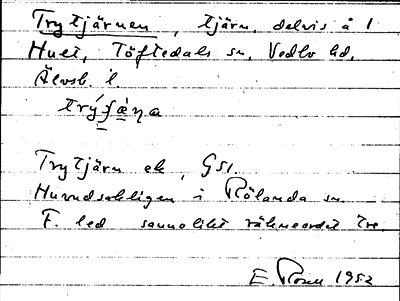 Trytjärnen, tjärn, delvis å 1
Huet, Töftedals sn, Vedbo hd,
Älvsb. l.
Trytjärn ek, GSI.
Huvudsakligen i Rölanda sn.
F. led sannolikt räkneordet tre.
E. Rosen 1952